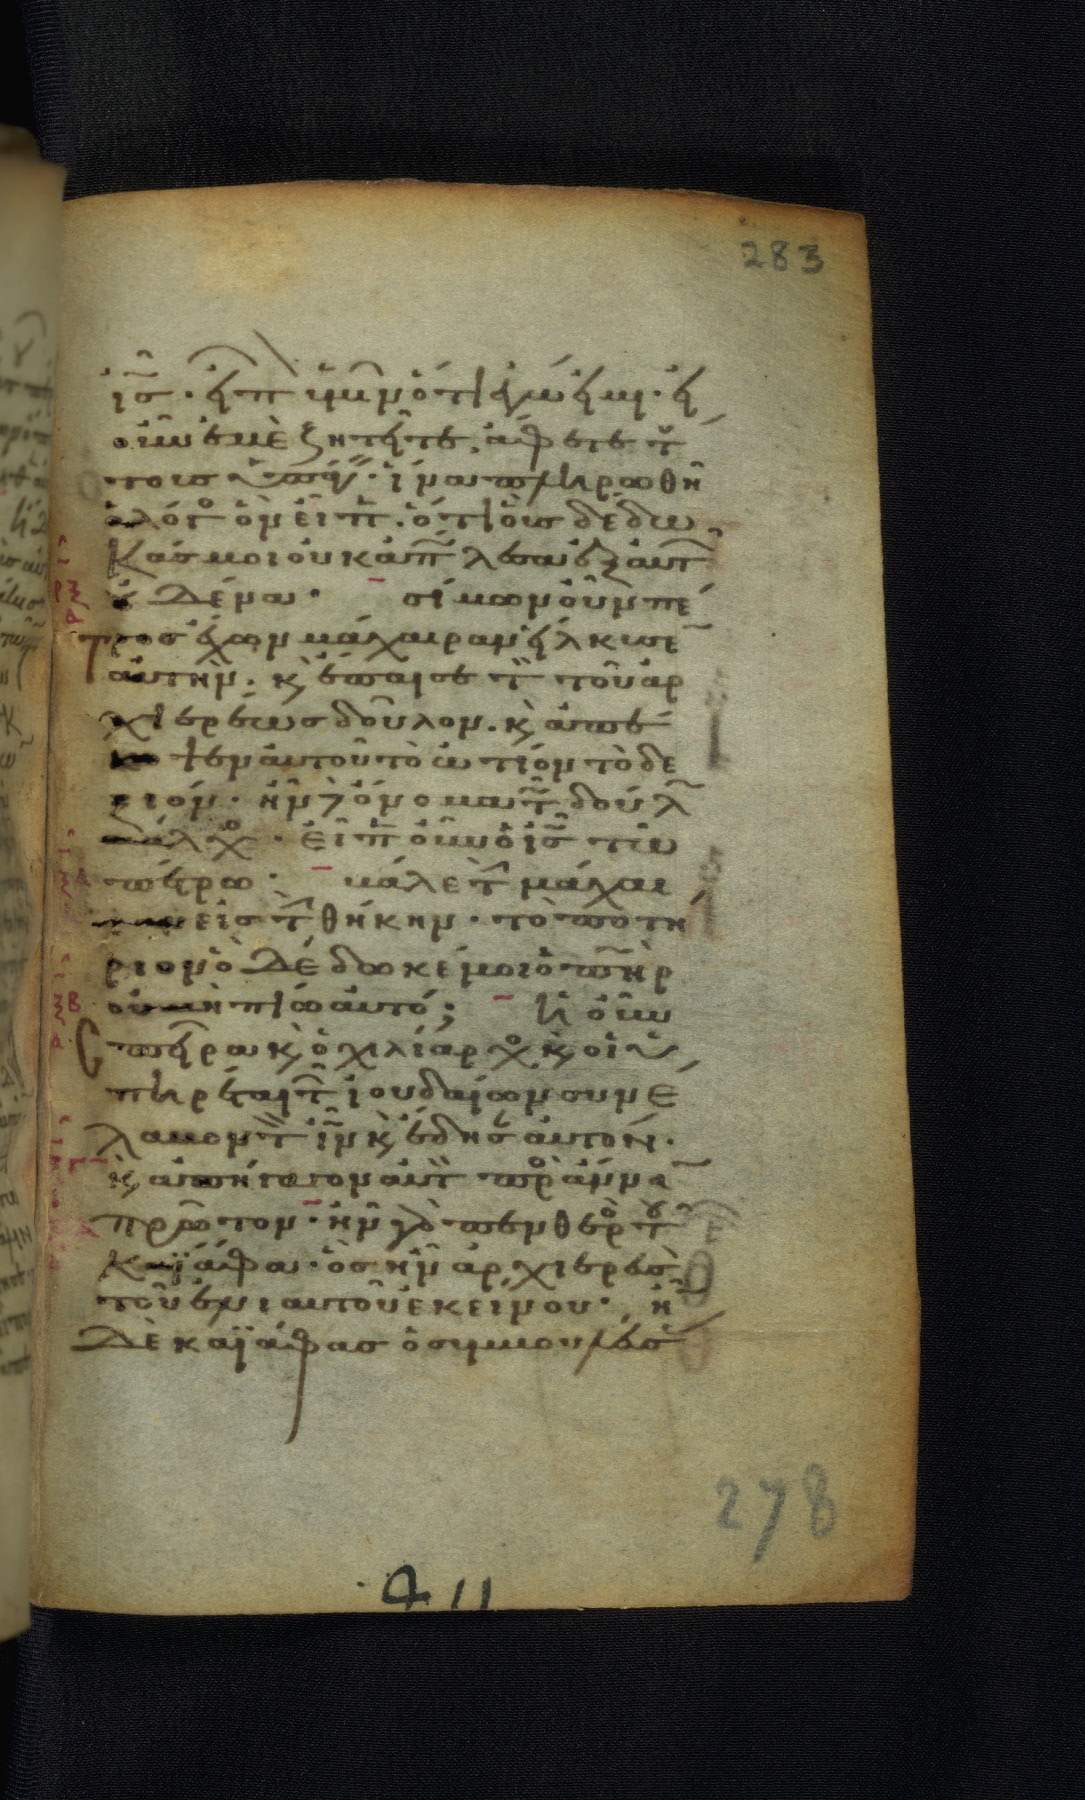 283
ἰς̅. εἶπ ὑμῖν ὅτι ἐγώ εἰμι. εἰ
οὖν ἐμὲ ζητεῖτε, ἄφετε τού
τους ὑπάγειν. ἵνα πληρωθῆ
ὁ λόγος ὃν εἶπ. ὅτι οὓς δέδω
κάς μοι οὐκ ἀπώλεσα ἐξ αὐτ
οὐδένα. σίμων οὖν πέ
τρος ἔχων μάχαιραν εἵλκυσε
αὐτήν. κ ἔπαισε τὸν τοῦ ἀρ
χιερέως δοῦλον. κ ἀπέ
κοψεν αὐτοῦ τὸ ὠτίον τὸ δε
ξιόν. ἦν δὲ ὄνομα τῶ δούλω
μάλχος. εἶπεν οὖν ὁ ἰς̅ τῶ
πέτρω. βάλε τὴν μάχαι
ραν εἰς τὴν θήκην. τὸ ποτή
ριον ὃ δέδωκέ μοι ὁ πη̅ρ
οὐ μὴ πίω αὐτό; ἡ οὖν
σπεῖρα κ ὁ χιλίαρχος κ οἱ ὑ
πηρέται τῶν ἰουδαίων συνέ
λαβον τὸν ἰν̅ κ ἔδησαν αὐτόν.
κ ἀπήγαγον αὐτὸν πρὸς ἄννα
πρῶτον. ἦν γὰρ πενθερὸς τοῦ
καϊάφα. ὃς ἦν ἀρχιερεὺς
τοῦ ἐνιαυτοῦ ἐκείνου. ἦν
δὲ καϊάφας ὁ συμβουλεύσας
278